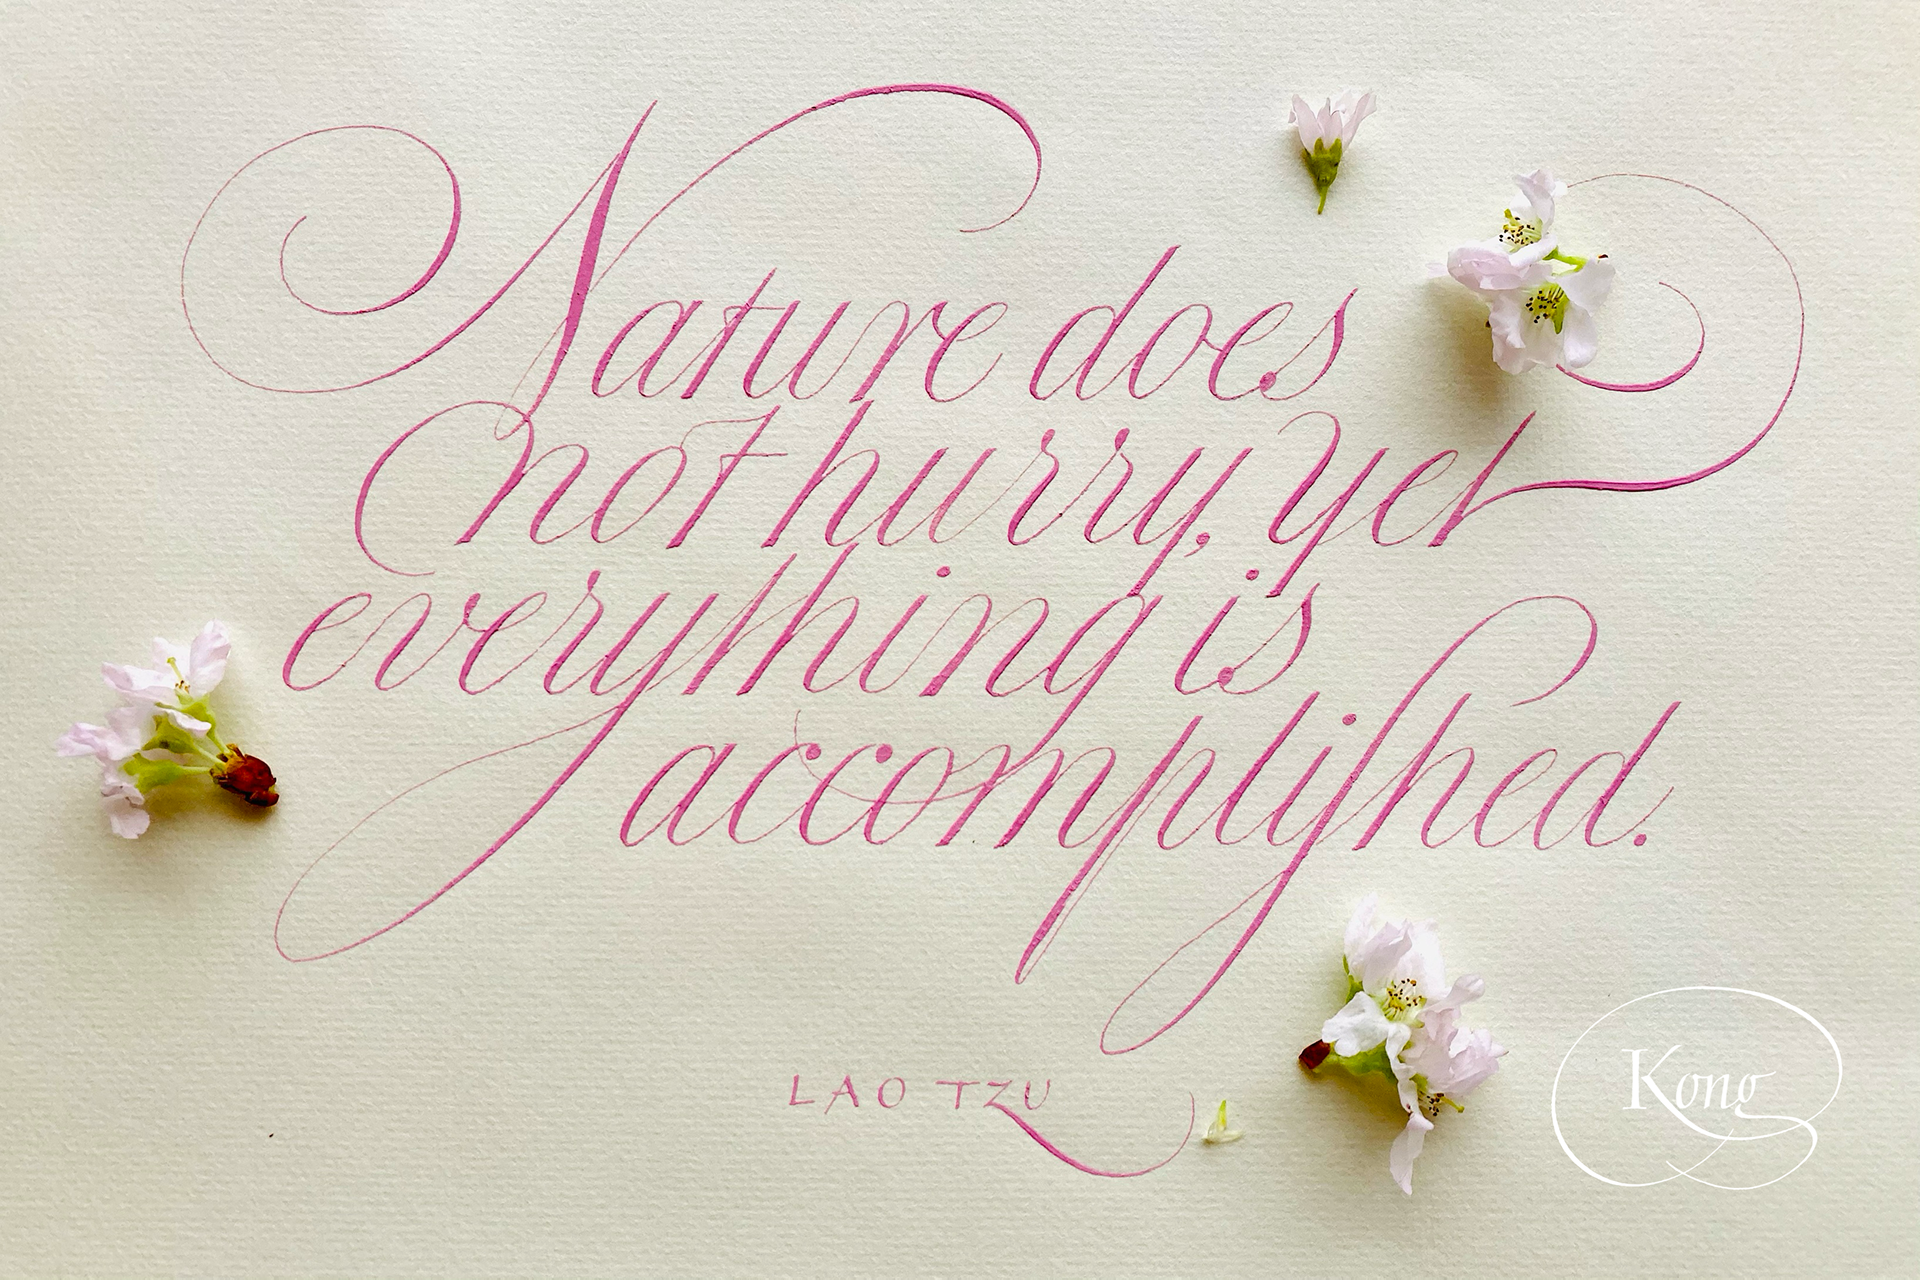 Nature does
not hurry, yet
everything is
accomplished.
LAO TZU
Kong